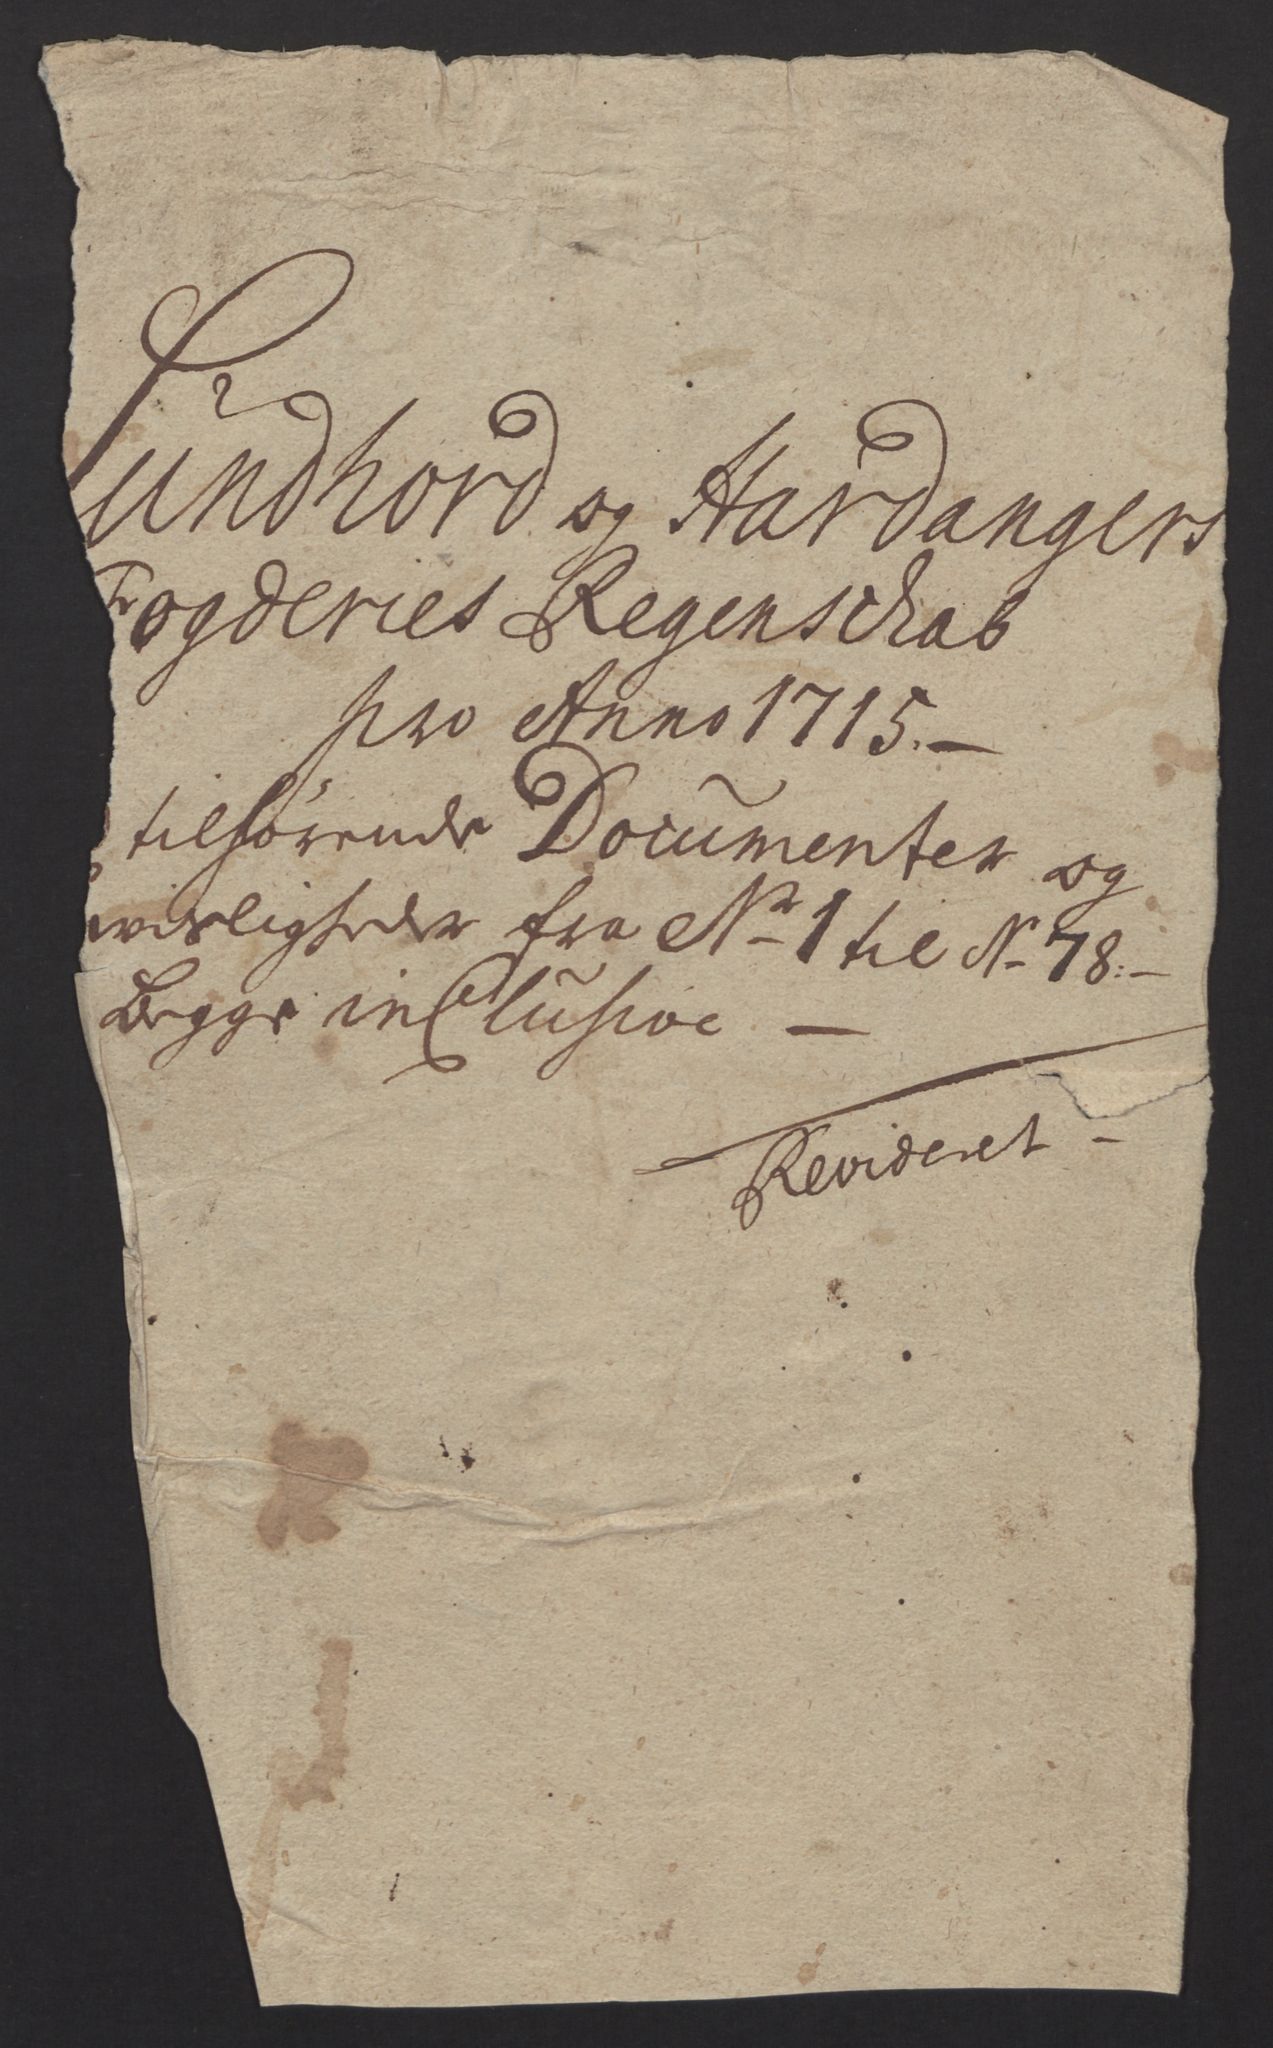 Sundhord og Hardangers
Fogderies Regenschab
pro Anno 1715.—
tilhörende Documenter og
wisligheder fra No 1 til N. 78:—
Begge inClusive —
Revideret —